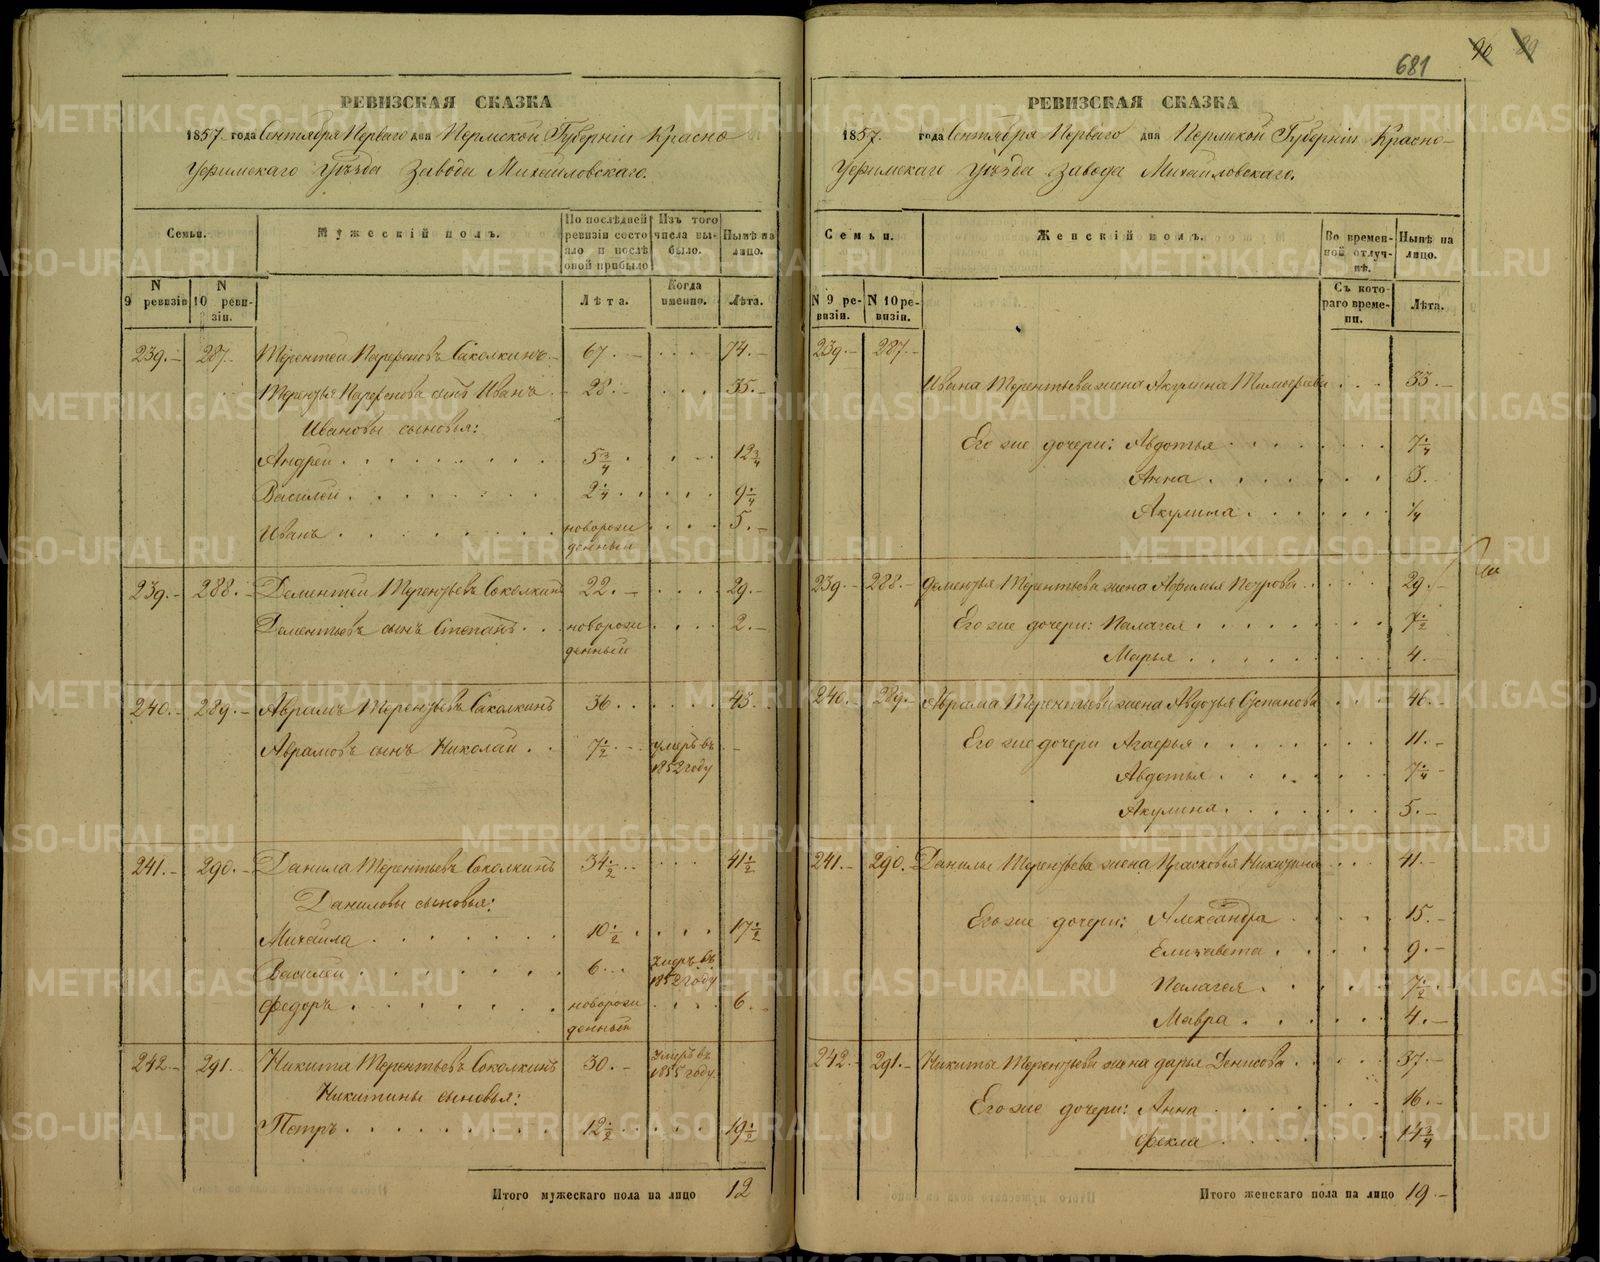 681 90 89
РЕВИЗСКАЯ СКАЗКА
1857 года Сентября Перваго дня Пермской Губерніи Красно
Уфимскаго Уѣзда Завода Михайловскаго.
Семьи.
Мужескій полъ.
По послѣдней ревизіи состояло и послѣ оной прибыло
Изъ того числа выбыло.
Нынѣ на лицо.
N 9 ревизіи
N 10 ревизіи.
Лѣта.
Когда именно.
Лѣта.
239. 287. Терентей Парфеновъ Саколкинъ 67. 74.
Терентья Парфенова сынъ Иванъ 28. 35.
Ивановы сыновья:
Андрей 5 3/4 12 3/4
Василей 2 1/4 9 1/4
Иванъ новорожденный 5.
239. 288. Дементей Терентьевъ Соколкинъ 22. 29.
Дементьевъ сынъ Степанъ новорожденный 2.
240. 289. Аврамъ Терентьевъ Саколкинъ 36 43.
Аврамовъ сынъ Николай 7 1/2 умеръ въ 1852 году
241. 290. Данила Терентьевъ Соколкинъ 34 1/2 41 1/2
Даниловы сыновья:
Михаила 10 1/2 17 1/2
Василей 6 умеръ въ 1852 году
Федоръ новорожденный 6.
242. 291. Никита Терентьевъ Соколкинъ 30. умеръ въ 1855 году
Никитины сыновья:
Петръ 12 1/2 19 1/2
Итого мужескаго пола на лицо 12
РЕВИЗСКАЯ СКАЗКА
1857. года Сентября Перваго дня Пермской Губерніи Красно-
Уфимскаго Уѣзда Завода Михайловскаго.
Семьи.
Женскій полъ.
Во временной отлучкѣ.
Нынѣ на лицо.
N 9 ревизіи.
N 10 ревизіи.
Съ котораго времени.
Лѣта.
239. 287.
Ивана Терентьева жена Акулина Тимофеева 33.
Его же дочери: Авдотья 7 1/4
Анна 3.
Акулина 1/4
239. 288. Дементья Терентьева жена Афимья Петрова 29.
Его же дочери: Палагея 7 1/2
Марья 4.
240. 289. Аврама Терентьева жена Авдотья Степанова 46.
Его же дочери Агафья 11.
Авдотья 7 1/4
Акулина 5.
241. 290. Данилы Терентьева жена Прасковья Никитина 41.
Его же дочери: Александра 15.
Елизавета 9.
Палагея 7 1/2
Мавра 4.
242. 291. Никиты Терентьева жена Дарья Денисова 37.
Его же дочери: Анна 16.
Фекла 14 3/4
Итого женскаго пола на лицо 19.
METRIKI.GASO-URAL.RU